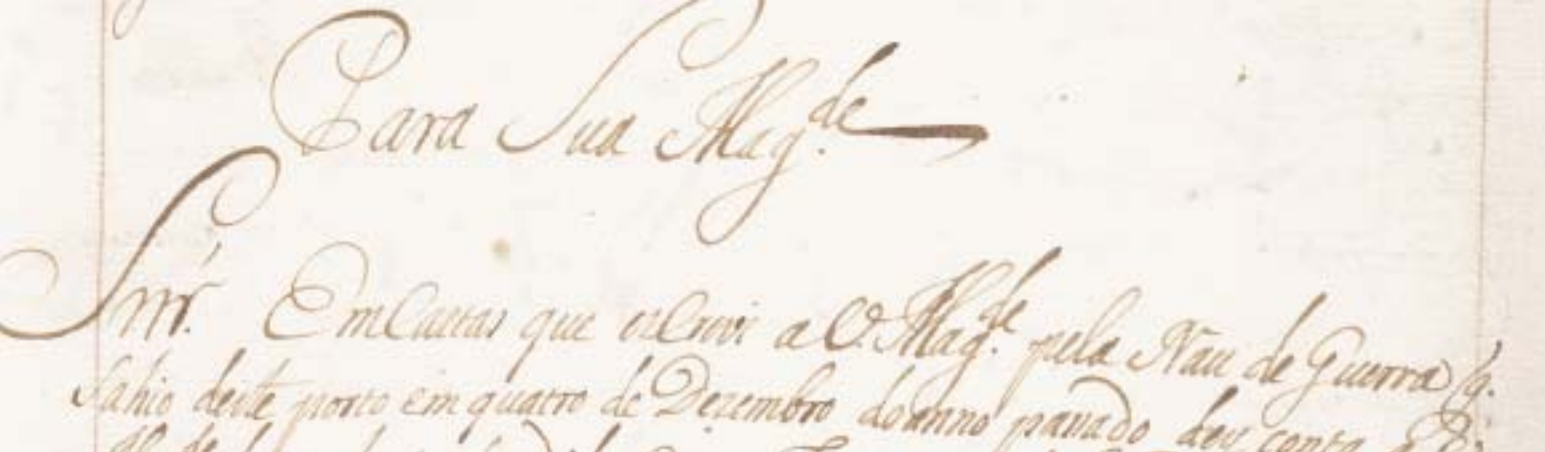 Para Sua Mag.de
Snr. Em Cartas que escrevi a V. Mag.de pela Nau de Guerra q.
sahio deste porto em quatro de Dezembro do anno passado dey conta a V.